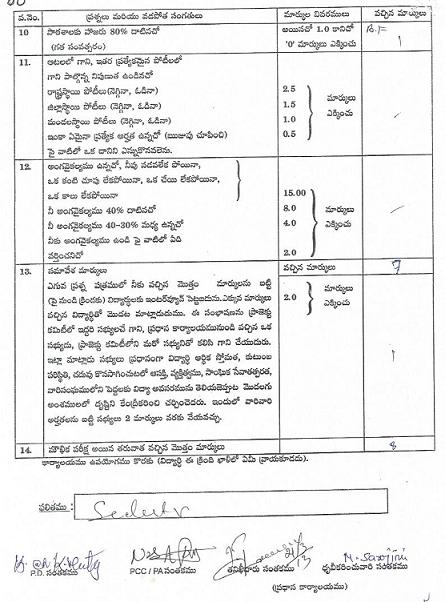 వ.నెం. ప్రశ్నలు మరియు వడపోత సంగతులు మార్కుల వివరములు వచ్చిన మార్కులు
10 పాఠశాలకు హాజరు 80% దాటినచో అయినచో 1.0 కానిచో
(గత సంవత్సరం) '0' మార్కులు ఎక్కించు 1
11. ఆటలలో గాని, ఇతర ప్రత్యేకమైన పోటీలలో
గాని పాల్గొన్న నిపుణత ఉండినచో
రాష్ట్రస్థాయి పోటీలు(నెగ్గినా, ఓడినా) 2.5
జిల్లాస్థాయి పోటీలు(నెగ్గినా, ఓడినా) 1.5 మార్కులు
మండలస్థాయి పోటీలు (నెగ్గినా, ఓడినా) 1.0 ఎక్కించు
ఇంకా ఏమైనా ప్రత్యేక అర్హత ఉన్నచో (ఋజువు చూపించి) 0.5
పై వాటిలో ఒక దానిని ఎన్నుకొనవలెను.
12. అంగవైకల్యము ఉన్నచో, నీవు నడవలేక పోయినా,
ఒక కంటి చూపు లేకపోయినా, ఒక చేయి లేకపోయినా,
ఒక కాలు లేకపోయినా 15.00
నీ అంగవైకల్యము 40% దాటినచో 8.0 మార్కులు
నీ అంగవైకల్యము 40-30% మధ్య ఉన్నచో 4.0 ఎక్కించు
నీకు అంగవైకల్యము ఉండి పై వాటిలో ఏది
వర్తించనిచో 2.0
13. సమావేశ మార్కులు వచ్చిన మార్కులు 7
ఎగువ ప్రశ్న పత్రములో నీకు వచ్చిన మొత్తం మార్కులను బట్టి
(పై నుండి క్రిందకు) విద్యార్థులకు ఇంటర్వ్యూవ్ పెట్టబడును.ఎక్కువ మార్కులు 2.0 మార్కులు
వచ్చిన విద్యార్థితో మొదట మాట్లాడుదుము. ఈ సంభాషణను ప్రాజెక్టు ఎక్కించు
కమిటీలో ఇద్దరి సభ్యులచే గాని, ప్రధాన కార్యాలయమునుండి వచ్చిన ఒక
సభ్యుడు, ప్రాజెక్టు కమిటీలోని మరో సభ్యునితో కలిసి గాని చేయుదురు.
ఇట్లా మాట్లాడు సభ్యులు ప్రధానంగా విద్యార్థి ఆర్థిక స్తోమత, కుటుంబ
పరిస్థితి, చదువు కొనసాగించుటలో ఆసక్తి, వ్యక్తిత్వము, సాంఘిక సేవాతత్పరత,
వారిసంఘములోని పెద్దలకు విద్యా అవసరమును తెలియజెప్పుట మొదలగు
అంశములలో దృష్టిని కేంద్రీకరించి చర్చించెదరు. ఇందులో వారివారి
అర్హతలను బట్టి సభ్యులు 2 మార్కులు వరకు వేయవచ్చు. 1
14. మౌళిక పరీక్ష అయిన తరువాత వచ్చిన మొత్తం మార్కులు 8
కార్యాలయము ఉపయోగము కొరకు (విద్యార్థి ఈ క్రింది ఖాళీలో ఏమీ వ్రాయకూడదు).
ఫలితము :
P.D. సంతకము PCC / PA సంతకము తనిఖీదారు సంతకము ధృవీకరించువారి సంతకము
(ప్రధాన కార్యాలయము)